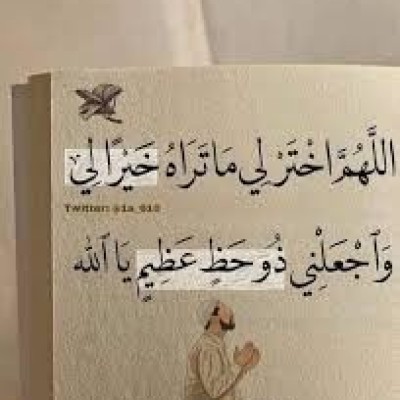 اللَّهُمَّ اخْتَرْ لِي مَا تَرَاهُ خَيْرًا لِي
Twitter: @1a_010
وَٱجْعَلْنِي ذُو حَظٍ عَظِيمٍ يَا ٱللَّه